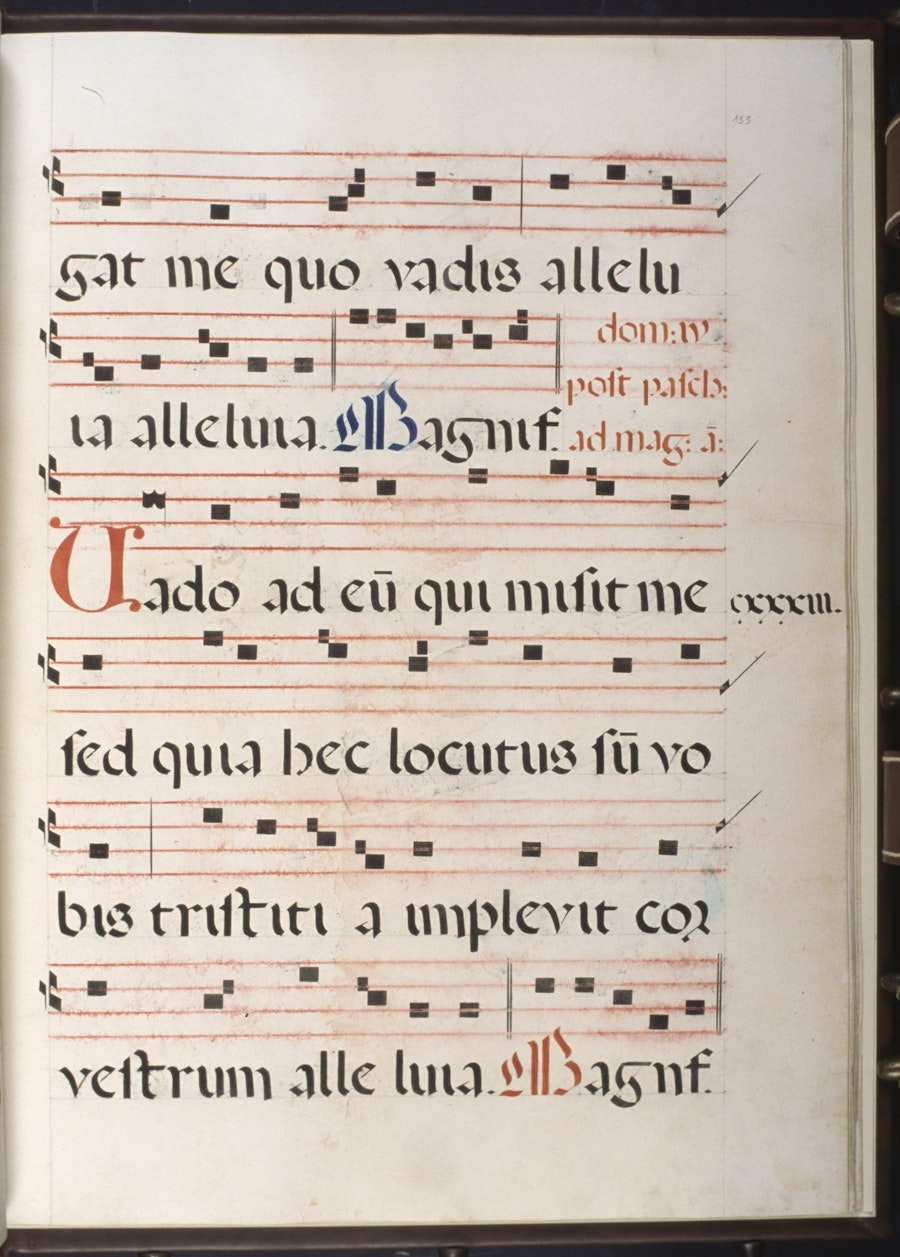 133
gat me quo vadis allelu
ia alleluia. Magnif.
dom: iv
post pasch:
ad mag: ā:
Uado ad eū qui misit me
cxxxiii.
sed quia hec locutus sū vo
bis tristiti a implevit cor
vestrum alle luia. Magnf.